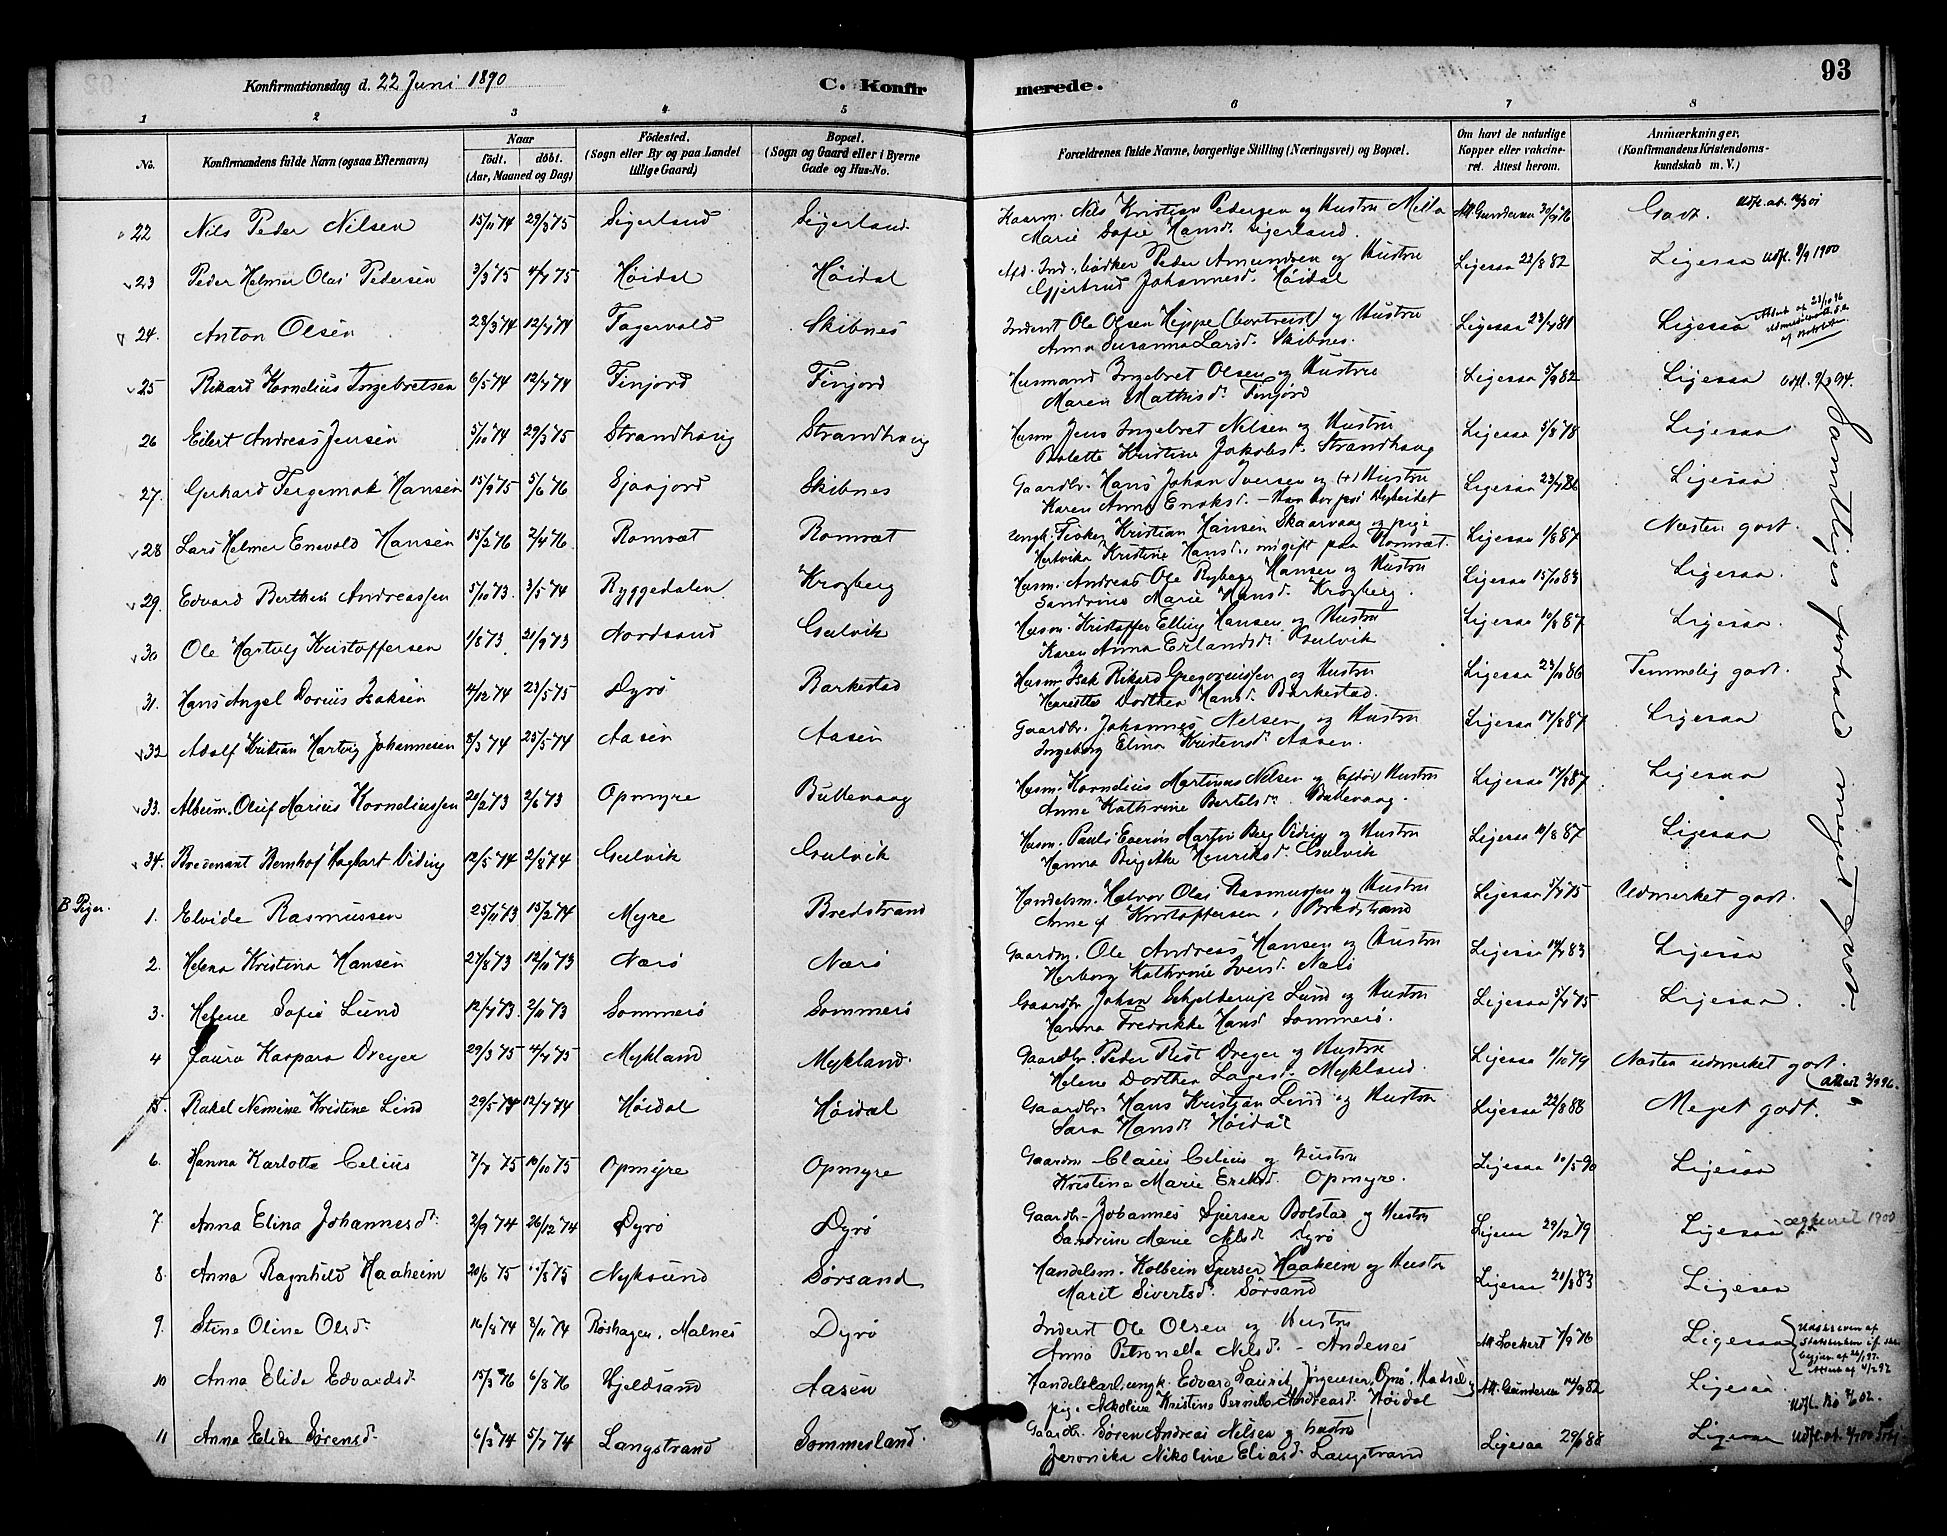 93
Konfirmationsdag d. 22 Juni 1890 C. Konfirmerede.
1 2 3 4 5 6 7 8
No. Konfirmandens fulde Navn (ogsaa Efternavn) Naar födt. döbt. (Aar, Maaned og Dag) Födested. (Sogn eller By og paa Landet tillige Gaard) Bopæl. (Sogn og Gaard eller i Byerne Gade og Hus-No. Forældrenes fulde Navne, borgerlige Stilling (Næringsvei) og Bopæl. Om havt de naturlige Kopper eller vakcineret. Attest herom. Anmærkninger. (Konfirmandens Kristendomskundskab m. V.)
22 Nils Peder Nilsen 15/11 74 29/3 75 Sigerland Sigerland Nils Kristian Pedersen og Hustru Milla Marie Sofie Hansd. Sigerland. Att. Gundersen Godt.
23 Peder Helmer Olai Pedersen 3/3 75 4/7 75 Høidal Høidal Ind. bødker Peder Amundsen og Hustru Gjertrud Johannesd. Høidal Ligesaa 22/8 82 Ligesaa Udfl. 9/9 1900
24. Anton Olsen 23/3 74 12/7 74 Fagervold Skibnes Inderst Ole Olsen Heppe (bortreist) og Hustru Anna Susanna Larsd. Skibnes. Ligesaa Ligesaa
25 Rikard Kornelius Ingebretsen 6/5 74 12/7 74 Finjord Finjord Husmand Ingebret Olsen og Hustru Maren Mathisd. Finjord Ligesaa 5/9 82 Ligesaa
26 Edert Andreas Jensen 5/10 74 29/3 75 Strandhaug Strandhaug Husm. Jens Ingebret Nilsen og Hustru Bolette Kristine Jakobsd. Strandhaug Ligesaa 5/8 78 Ligesaa
27. Gerhard Hansen 15/9 75 5/6 76 Skibnes Gaardbr. Hans Johan Iversen og Hustru Karen Anna Enoksd. Ligesaa Ligesaa
28 Lars Helmer Enevold Hansen 15/2 76 2/4 76 Romvæt Romvæt Ungk. Fisker Kristian Hansen Skaarvaag og pige Hedvika Kristine Hansd., ugift paa Romvæt. Ligesaa 1/8 87 Næsten godt.
29. Edvard Berthin Andreassen 5/10 73. 3/5 74 Ryggedalen Krogberg Husm. Andreas Ole Ryberg Hansen og Hustru Sandrine Marie Hansd. Krogberg. Ligesaa 15/10 83 Ligesaa.
30 Ole Hartvig Kristoffersen 1/8 73 21/9 73 Nordsand Gulvik Husm. Kristoffer Elling Hansen og Hustru Karen Anna Erlandsd. Gulvik Ligesaa Ligesaa.
31. Hans Angel Dorius Isaksen 4/12 74 23/5 75 Dyrø Barkestad Husm. Isak Rikard Gregoriussen og Hustru Henriette Dorthea Hansd. Barkestad. Ligesaa Temmelig godt.
32 Adolf Kristian Hartvig Johannesen 8/3 74 25/5 74 Aasen Aasen Gaardbr. Johannes Nilsen og Hustru Ingeborg Elina Kristensd. Aasen. Ligesaa 17/8 87 Ligesaa
33. Oluf Marius Korneliussen 28/2 73 2/6 73 Opmyre Buttevaag Husm. Kornelius Martinus Nilsen og (afdøde) Hustru Anne Kathrine Bertelsd. Buttevaag. Ligesaa 17/8 87. Ligesaa
34. Vidring 12/5 74 2/8 74 Gulvik Gulvik Husm. Paul Martin Berg Viding og Hustru Hanna Birgitte Henriksd. Gulvik Ligesaa Ligesaa
Samtliges forhold meget godt.
B Piger.
1. Elvide Rasmussen 25/11 73 15/2 74 Myre Bredstrand Handelsm. Halvor Olai Rasmussen og Hustru Anne f. Kristoffersen, Bredstrand Ligesaa Udmerket godt.
2. Helena Kristina Hansen 27/8 73 12/10 73 Nærø Nærø Gaardm. Ole Andreas Hansen og Hustru Herborg Kathrine Iversd. Nærø Ligesaa Ligesaa
3. Helene Sofie Lund 12/7 73. 2/11 73 Sommerø Sommerø Gaardbr. Johan Schjelderup Lund og Hustru Hanna Fredrikke Hansd. Sommerø. Ligesaa Ligesaa.
4 Laura Kaspara Dreyer 29/3 75 4/7 75 Mykland Mykland. Gaardbr. Peder Rist Dreyer og Hustru Helene Dorthea Lagesd. Mykland. Ligesaa Næsten udmerket godt.
5. Rakel Nemine Kristine Lind 29/5 74 12/7 74 Høidal Høidal Gaardbr. Hans Kristian Lind og Hustru Sara Hansd. Høidal Ligesaa 22/8 88 Meget godt.
6. Hanna Karlotta Celius 7/7 75 10/10 75 Opmyre Opmyre Gaardm Claus Celius og Hustru Kristina Marie Eriksd. Opmyre. Ligesaa 10/5 90 Ligesaa
7. Anna Elina Johannesd. 2/9 74 26/12 74 Dyrø Dyrø Gaardbr. Johannes Sjursen Bolstad og Hustru Sandrine Marie Nilsd. Dyrø Ligesaa 29/12 79 Ligesaa
8. Anna Ragnhild Haaheim 20/6 75 Nyksund Sørsand Handelsm. Kolbein Sjursen Haaheim og Hustru Marit Sivertsd. Sørsand Ligesaa Ligesaa
9. Stine Oline Olsd. 16/8 74 8/11 74 Malnes Dyrø Inderst Ole Olsen og Hustru Anna Petronella Nilsd. - Andenes Att. Lockert 7/9 76 Ligesaa
10 Anna Elide Edvardsd. 15/3 76 6/8 76 Hjeldsand Aasen Handelskarl, ungk. Edvard Laurits Jørgensen, Hadsel og pig. Nikoline Kristine Pernille Andreasd. Høidal Att. Gundersen 14/9 82 Ligesaa.
11 Anna Elida Sørensd. 6/3 74 5/7 74 Langstrand Sommesland. Gaardbr. Søren Andreas Nilsen og hustru Jeronika Nikoline Eliasd. Langstrand Ligesaa Ligesaa